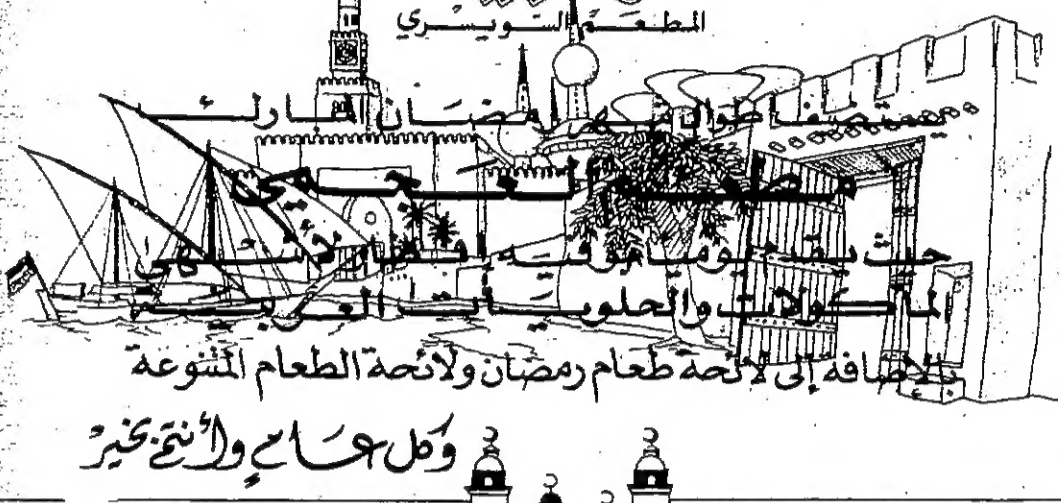 المطعم السويسري
يستضيف طوال شهر رمضان المبارك
مطعم
حيث يقدم يوميا بوفيه إفطار لأشهى
المأكولات والحلويات العربية
بالإضافة إلى لائحة طعام رمضان ولائحة الطعام المتنوعة
وكل عام وأنتم بخير